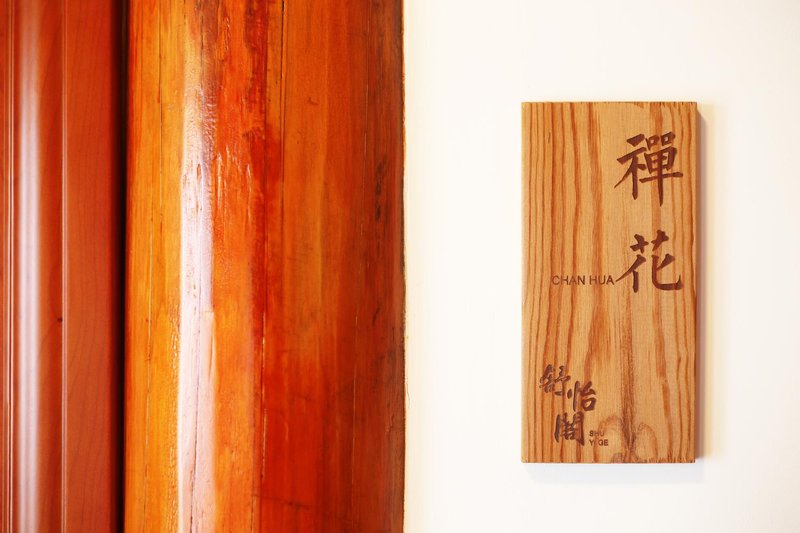 禪花
CHAN HUA
舒怡閣
SHU
YI GE